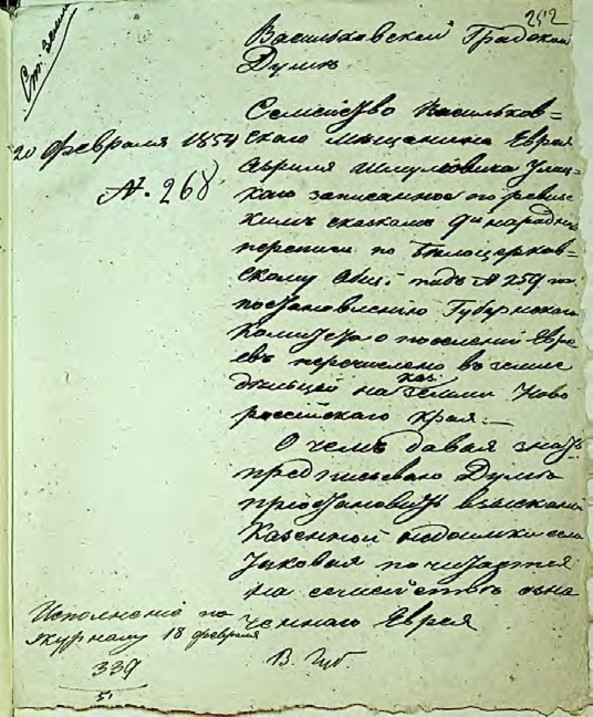 252
Васильковской Градской
Думѣ
20 февраля 1854
№. 268
Семейство Васильков=
скаго мѣщанина Еврея
Шмулевича
каго записанное по ревизс
кимъ сказкамъ 9й народной
переписи по Бѣлоцерков=
скому Общ: подъ № 259 по
постановленію Губернскаго
Комитета о поселеніи Евре
евъ перечислено въ земле
дѣльцы на каз. земли Ново
россійскаго края.—
О чемъ давая знать
предписываю Думѣ
пріостановить взысканіе
казенной недоимки если
таковая почитается
на семействѣ озна
ченнаго Еврея
В. Губ.
Исполнено по
журналу 18 февраля
339
51